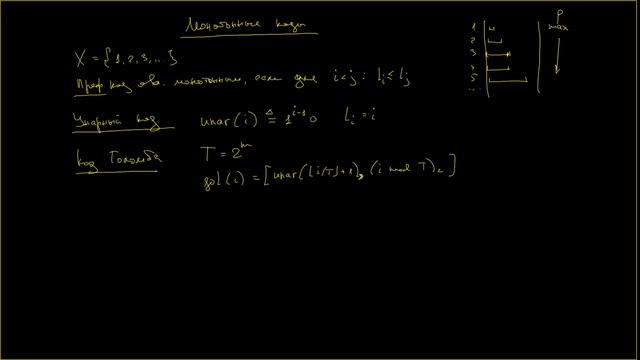 Монотонные коды
X = {1,2,3,...}
Преф код наз. монотонным, если для i<j : l_i ≤ l_j
Унарный код unar(i) ≜ 1^{i-1}0 l_i = i
Код Голомба T = 2^m
gol(i) = [unar(⌊i/T⌋+1), (i mod T)_2]
1
2
3
5
...
P
max